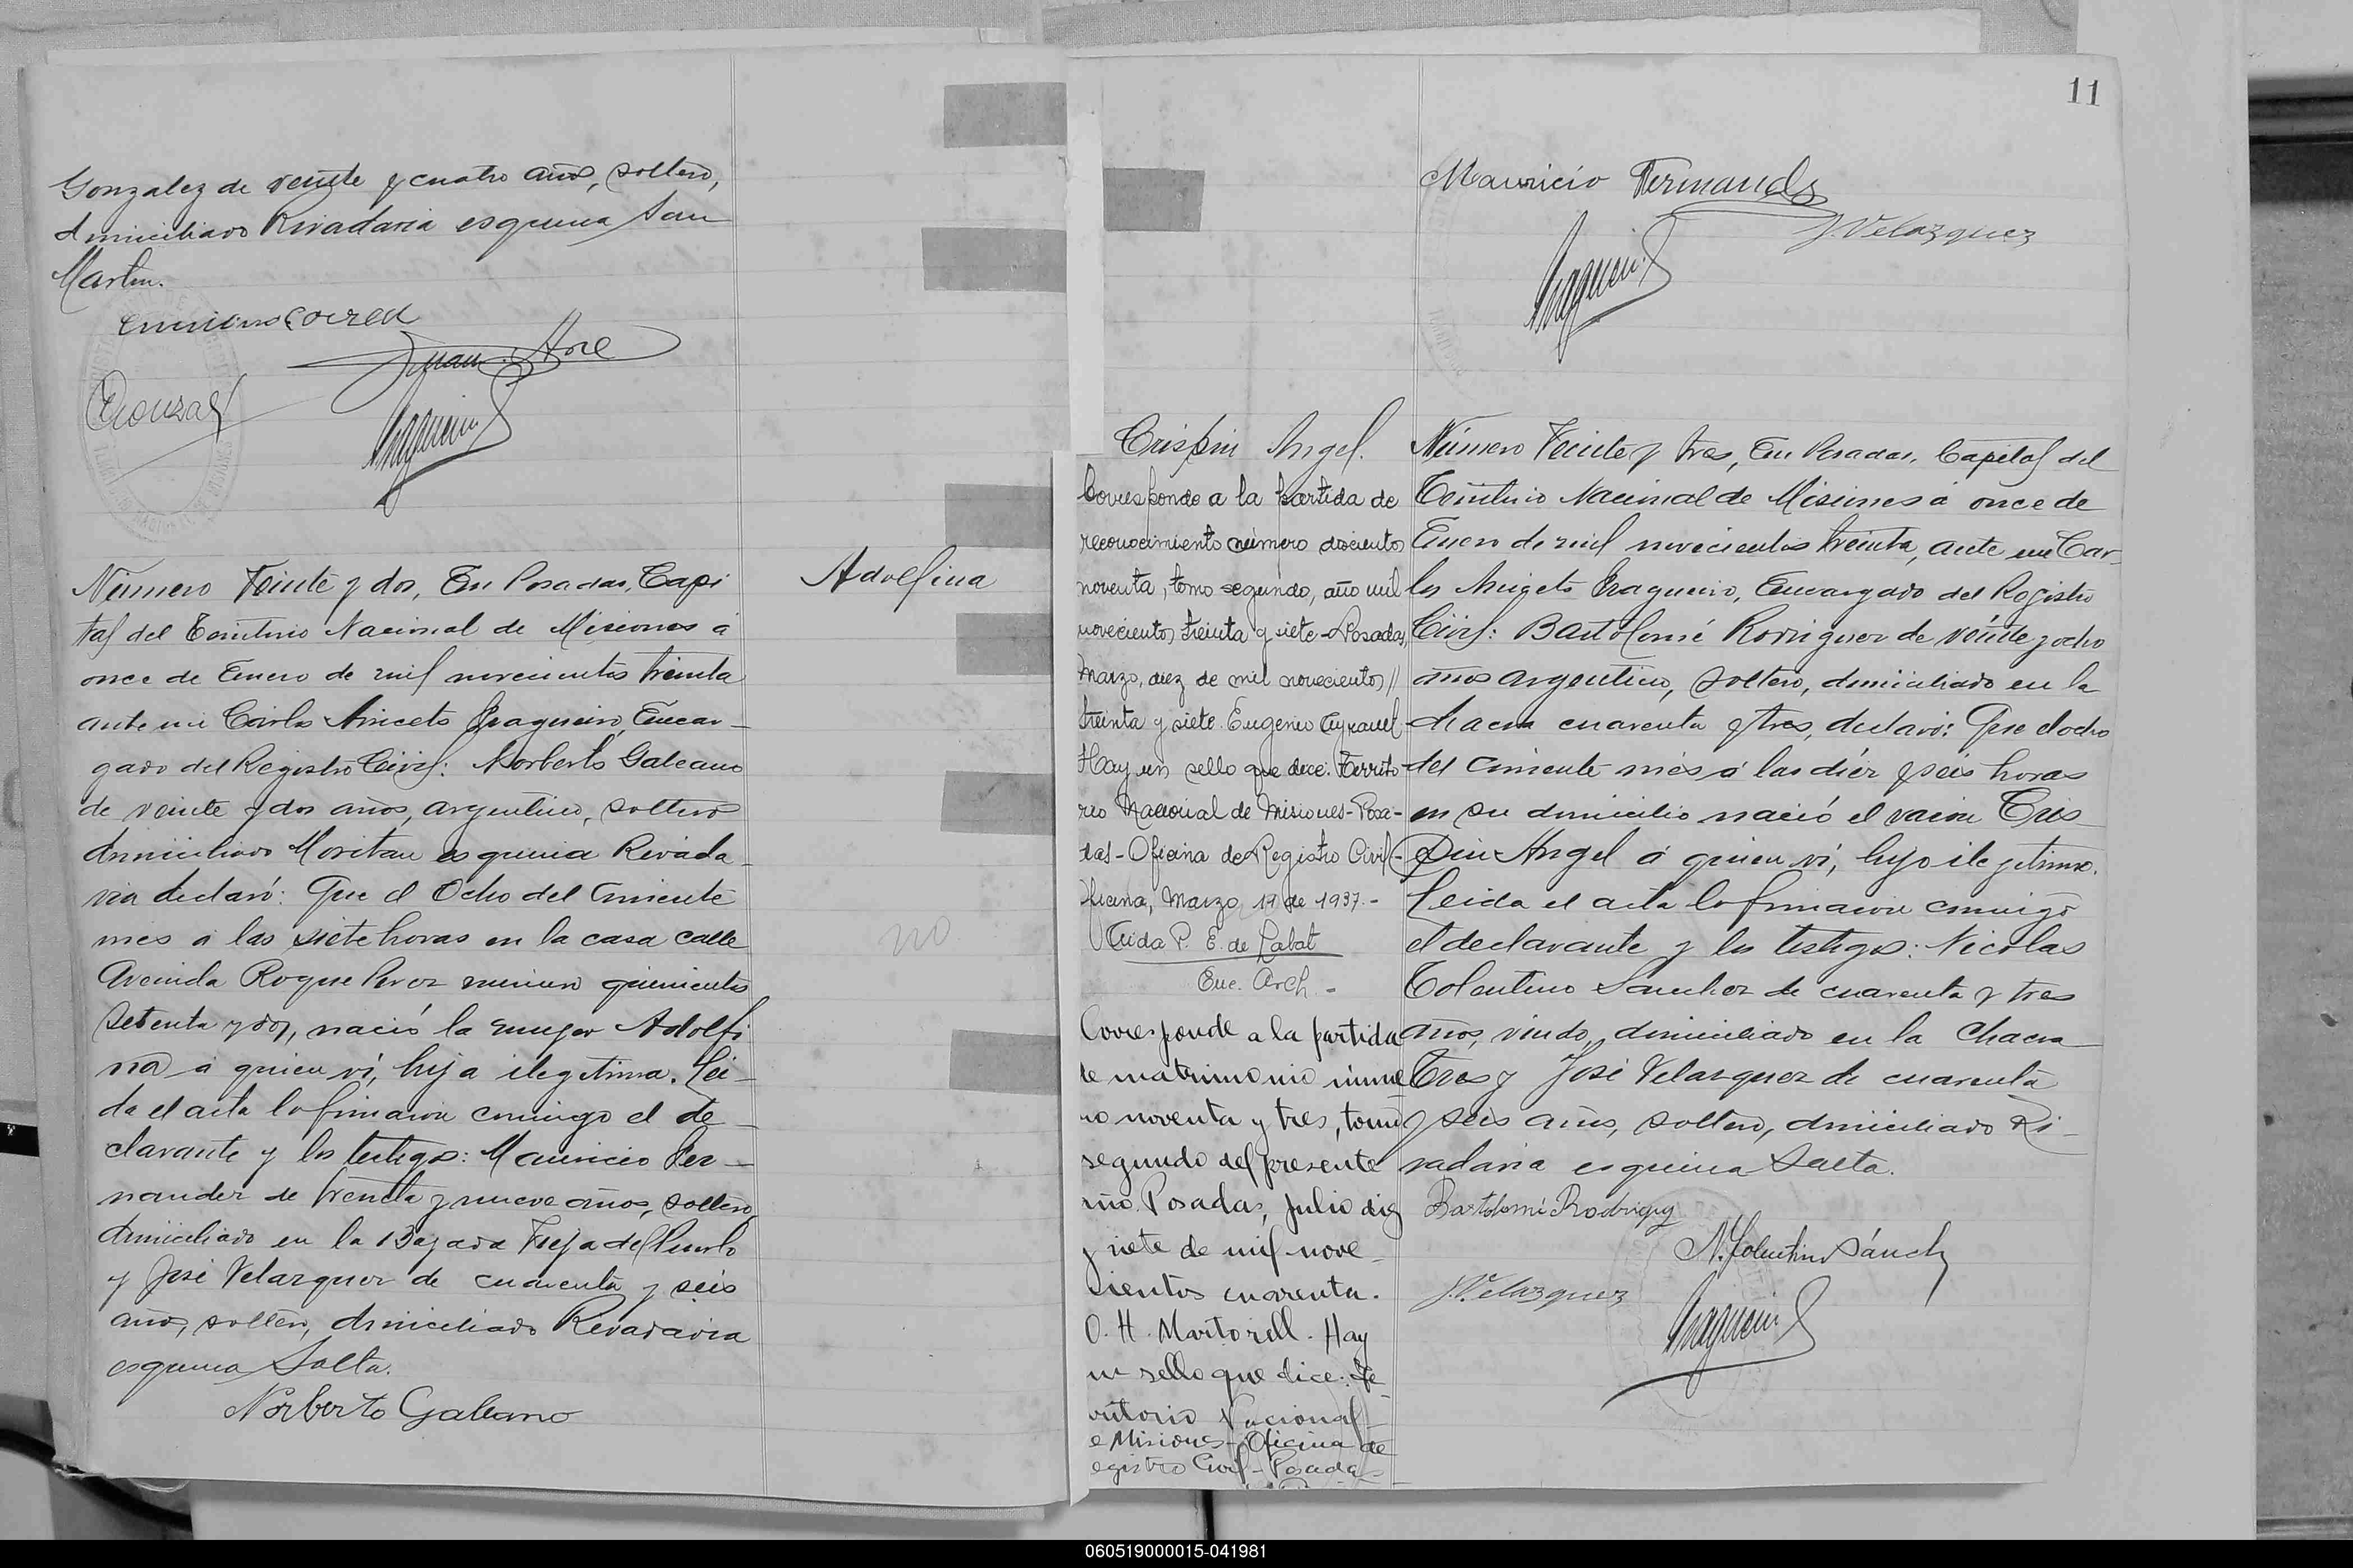 Gonzalez de veinte y cuatro años, soltero,
domiciliado Rivadavia esquina San
Martin.
Juan Ore
Número Veinte y dos, En Posadas, Capi
tal del Territorio Nacional de Misiones á
once de Enero de mil novecientos treinta
ante mi Carlos Aniceto Fragueiro, Encar-
gado del Registro Civil: Norberto Galeano
de veinte y dos años, argentino, soltero
domiciliado esquina Rivada-
via declaró: Que el Ocho del corriente
mes á las siete horas en la casa calle
Avenida Roque Perez número quinientos
setenta y dos, nació la mujer Adolfi
na á quien ví, hija ilegitima. Lei-
da el acta la firmaron conmigo el de-
clarante y los testigos: Mauricio Fer-
nandez de treinta y nueve años, soltero
domiciliado en la Bajada Vieja del Puerto
y José Velazquez de cuarenta y seis
años, soltero, domiciliado Rivadavia
esquina Salta.
Norberto Galeano
Adolfina
no
11
Mauricio Fernands
J. Velazquez
Crispin Angel.
Corresponde a la partida de
reconocimiento número doscientos
noventa, tomo segundo, año mil
novecientos treinta y siete - Posadas,
Marzo, diez de mil novecientos //
treinta y siete. Eugenio
Hay un sello que dice: Territo-
rio Nacional de Misiones - Posa-
das - Oficina de Registro Civil -
Oficina, Marzo 19 de 1937. -
Aida P. E. de Labat
Enc. Arch. -
Corresponde a la partida
de matrimonio núme
ro noventa y tres, tomo
segundo del presente
año. Posadas, Julio diez
y siete de mil nove
cientos cuarenta.
O. H. Martorell. Hay
un sello que dice: Te
rritorio Nacional
de Misiones - Oficina de
Registro Civil - Posadas
Número Veinte y tres, En Posadas, Capital del
Territorio Nacional de Misiones á once de
Enero de mil novecientos treinta, ante mi Car-
los Aniceto Fragueiro, Encargado del Registro
Civil: Bartolomé Rodriguez de veinte y ocho
años argentino, soltero, domiciliado en la
chacra cuarenta y tres, declaró: Que el ocho
del corriente mes á las diez y seis horas
en su domicilio nació el varon Cris-
pin Angel á quien ví, hijo ilegitimo.
Leida el acta la firmaron conmigo
el declarante y los testigos: Nicolas
Tolentino Sanchez de cuarenta y tres
años, viudo, domiciliado en la Chacra
Tres y José Velazquez de cuarenta
y seis años, soltero, domiciliado Ri-
vadavia esquina Salta.
Bartolomé Rodriguez
N. Tolentino Sánchz
J. Velazquez
060519000015-041981